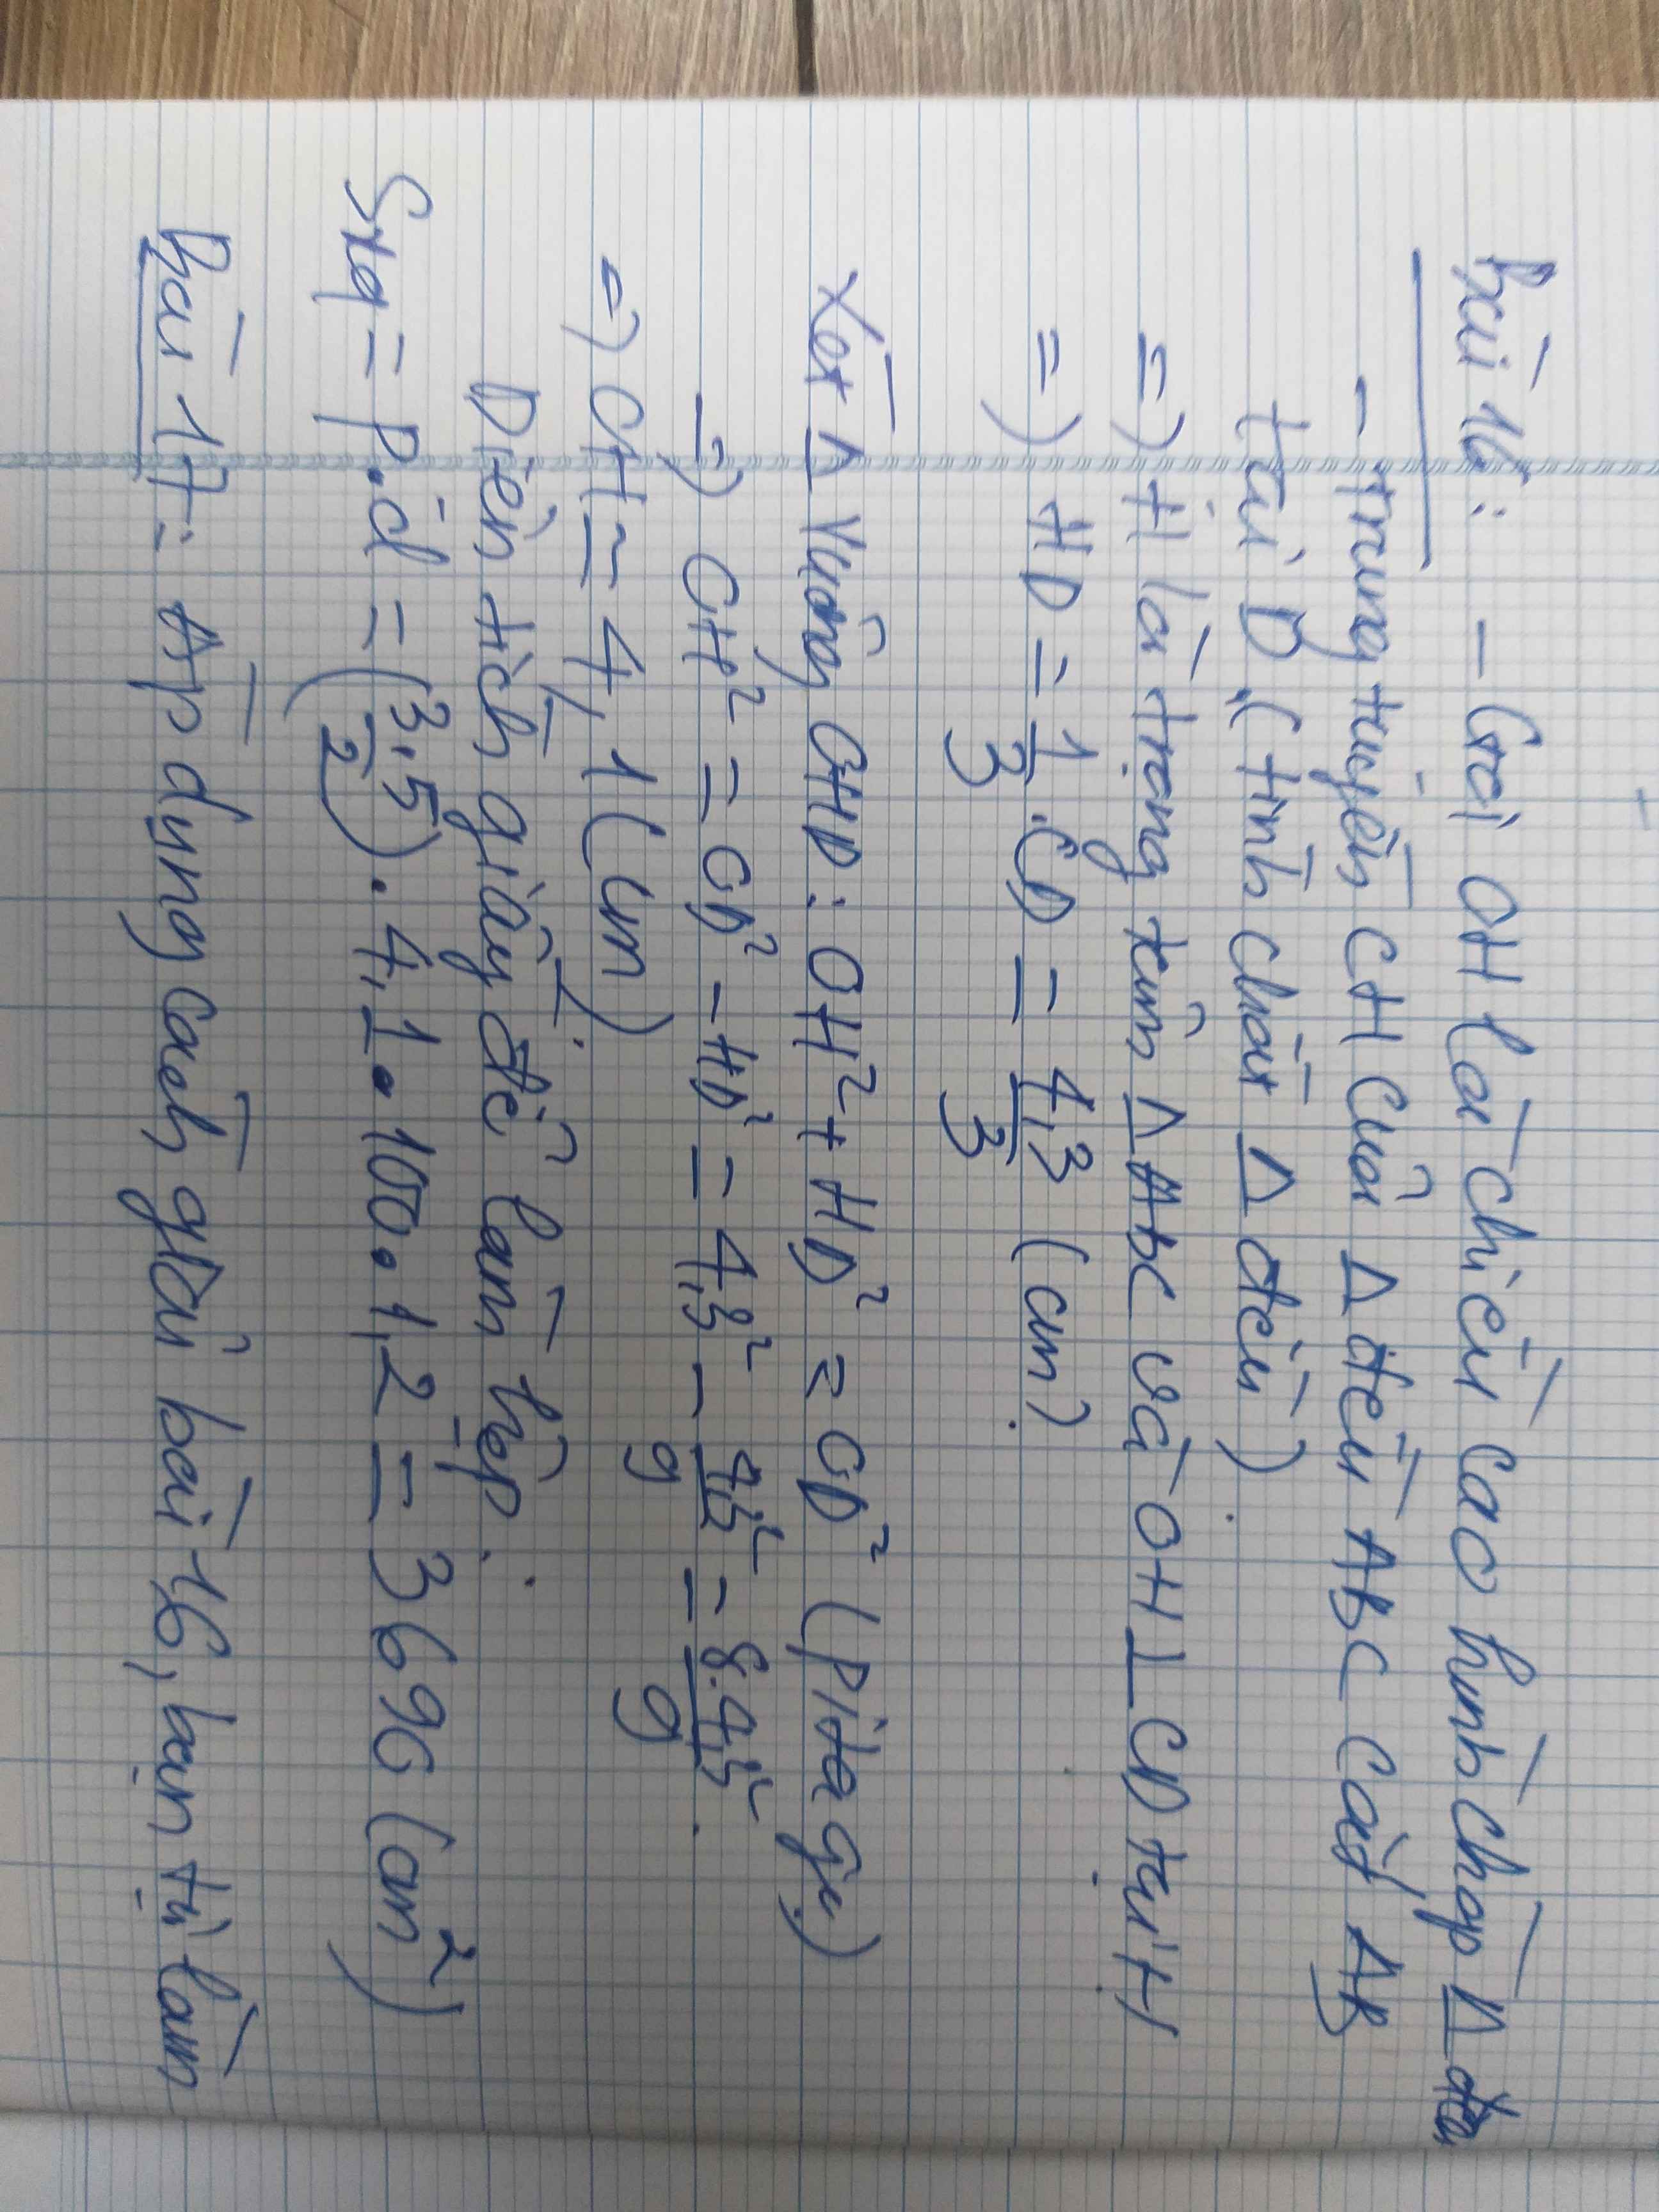 Bài 16: - Gọi OH là chiều cao hình chóp Δ đều
- trung tuyến CH của Δ đều ABC cắt AB
tại D (tính chất Δ đều)
=) H là trọng tâm Δ ABC và OH ⊥ CD tại H
=) HD = 1/3 . CD = 4,3/3 (cm)
Xét Δ vuông OHD: OH² + HD² = OD² (Pitago)
=) OH² = OD² - HD² = 4,3² - 4,3²/9 = 8.4,3²/9
=) OH = 4,1 (cm)
Diện tích giấy để làm hộp:
Sxq = P.d = (3,5/2) . 4,1 . 100 . 1,2 = 3696 (cm²)
Bài 17: Áp dụng cách giải bài 16, bạn tự làm